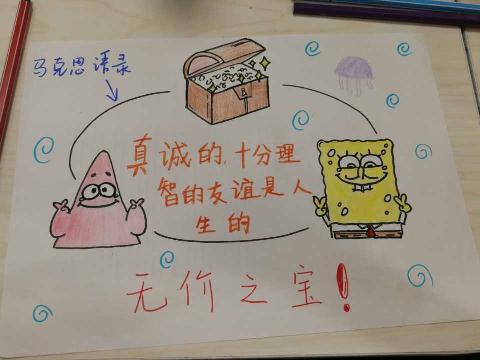 马克思语录
真诚的、十分理
智的友谊是人
生的
无价之宝!